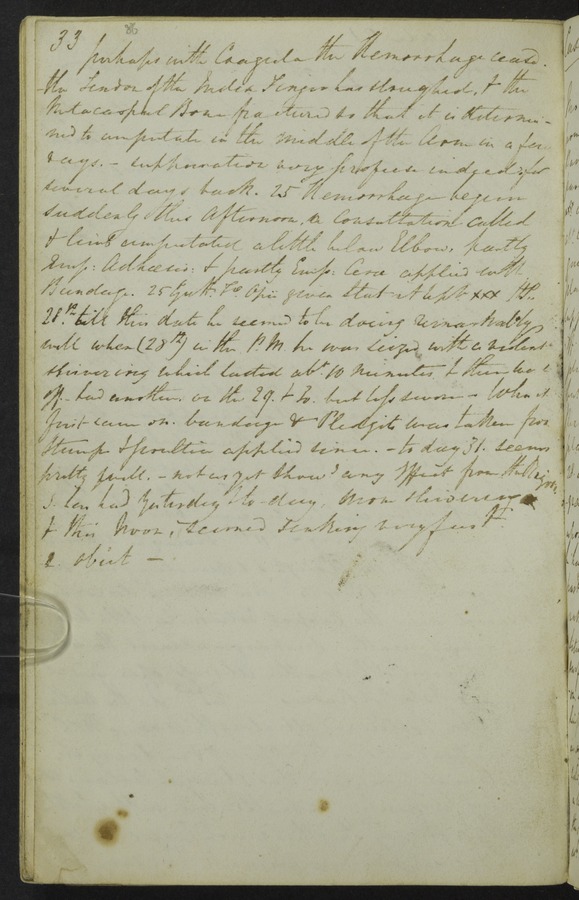 33 86
perhaps with Coagula the Hemorrhage ceased.
the Tendon of the Index Finger has sloughed, & the
Metacarpal Bone fractured so that it is determi-
ned to amputate in the middle of the Arm in a few
days. - suppuration very profuse indeed for
several days back. 25 Hemorrhage began
suddenly this afternoon, a Consultation called
& limb amputated a little below Elbow. partly
Emp: Adhæsiv: & partly Emp: Ceræ applied with
Bandage. 25 Gutt. Opii given Stat et Vesp xxx
28th till this date he seemed to be doing remarkably
well when (28th) in the P.M he was seized with a violent
shivering which lasted abt. 10 minutes & then wore
off - had another on the 29. & 30. but less severe - When it
first came on bandage & Pledgits was taken from
Stump & poultice applied since. - to day 31. seems
pretty well. - not as yet show'd any Effect from the
1. has had yesterday & to day, more shiverings
& this Noon, seemed sinking very fast
2 obiit -